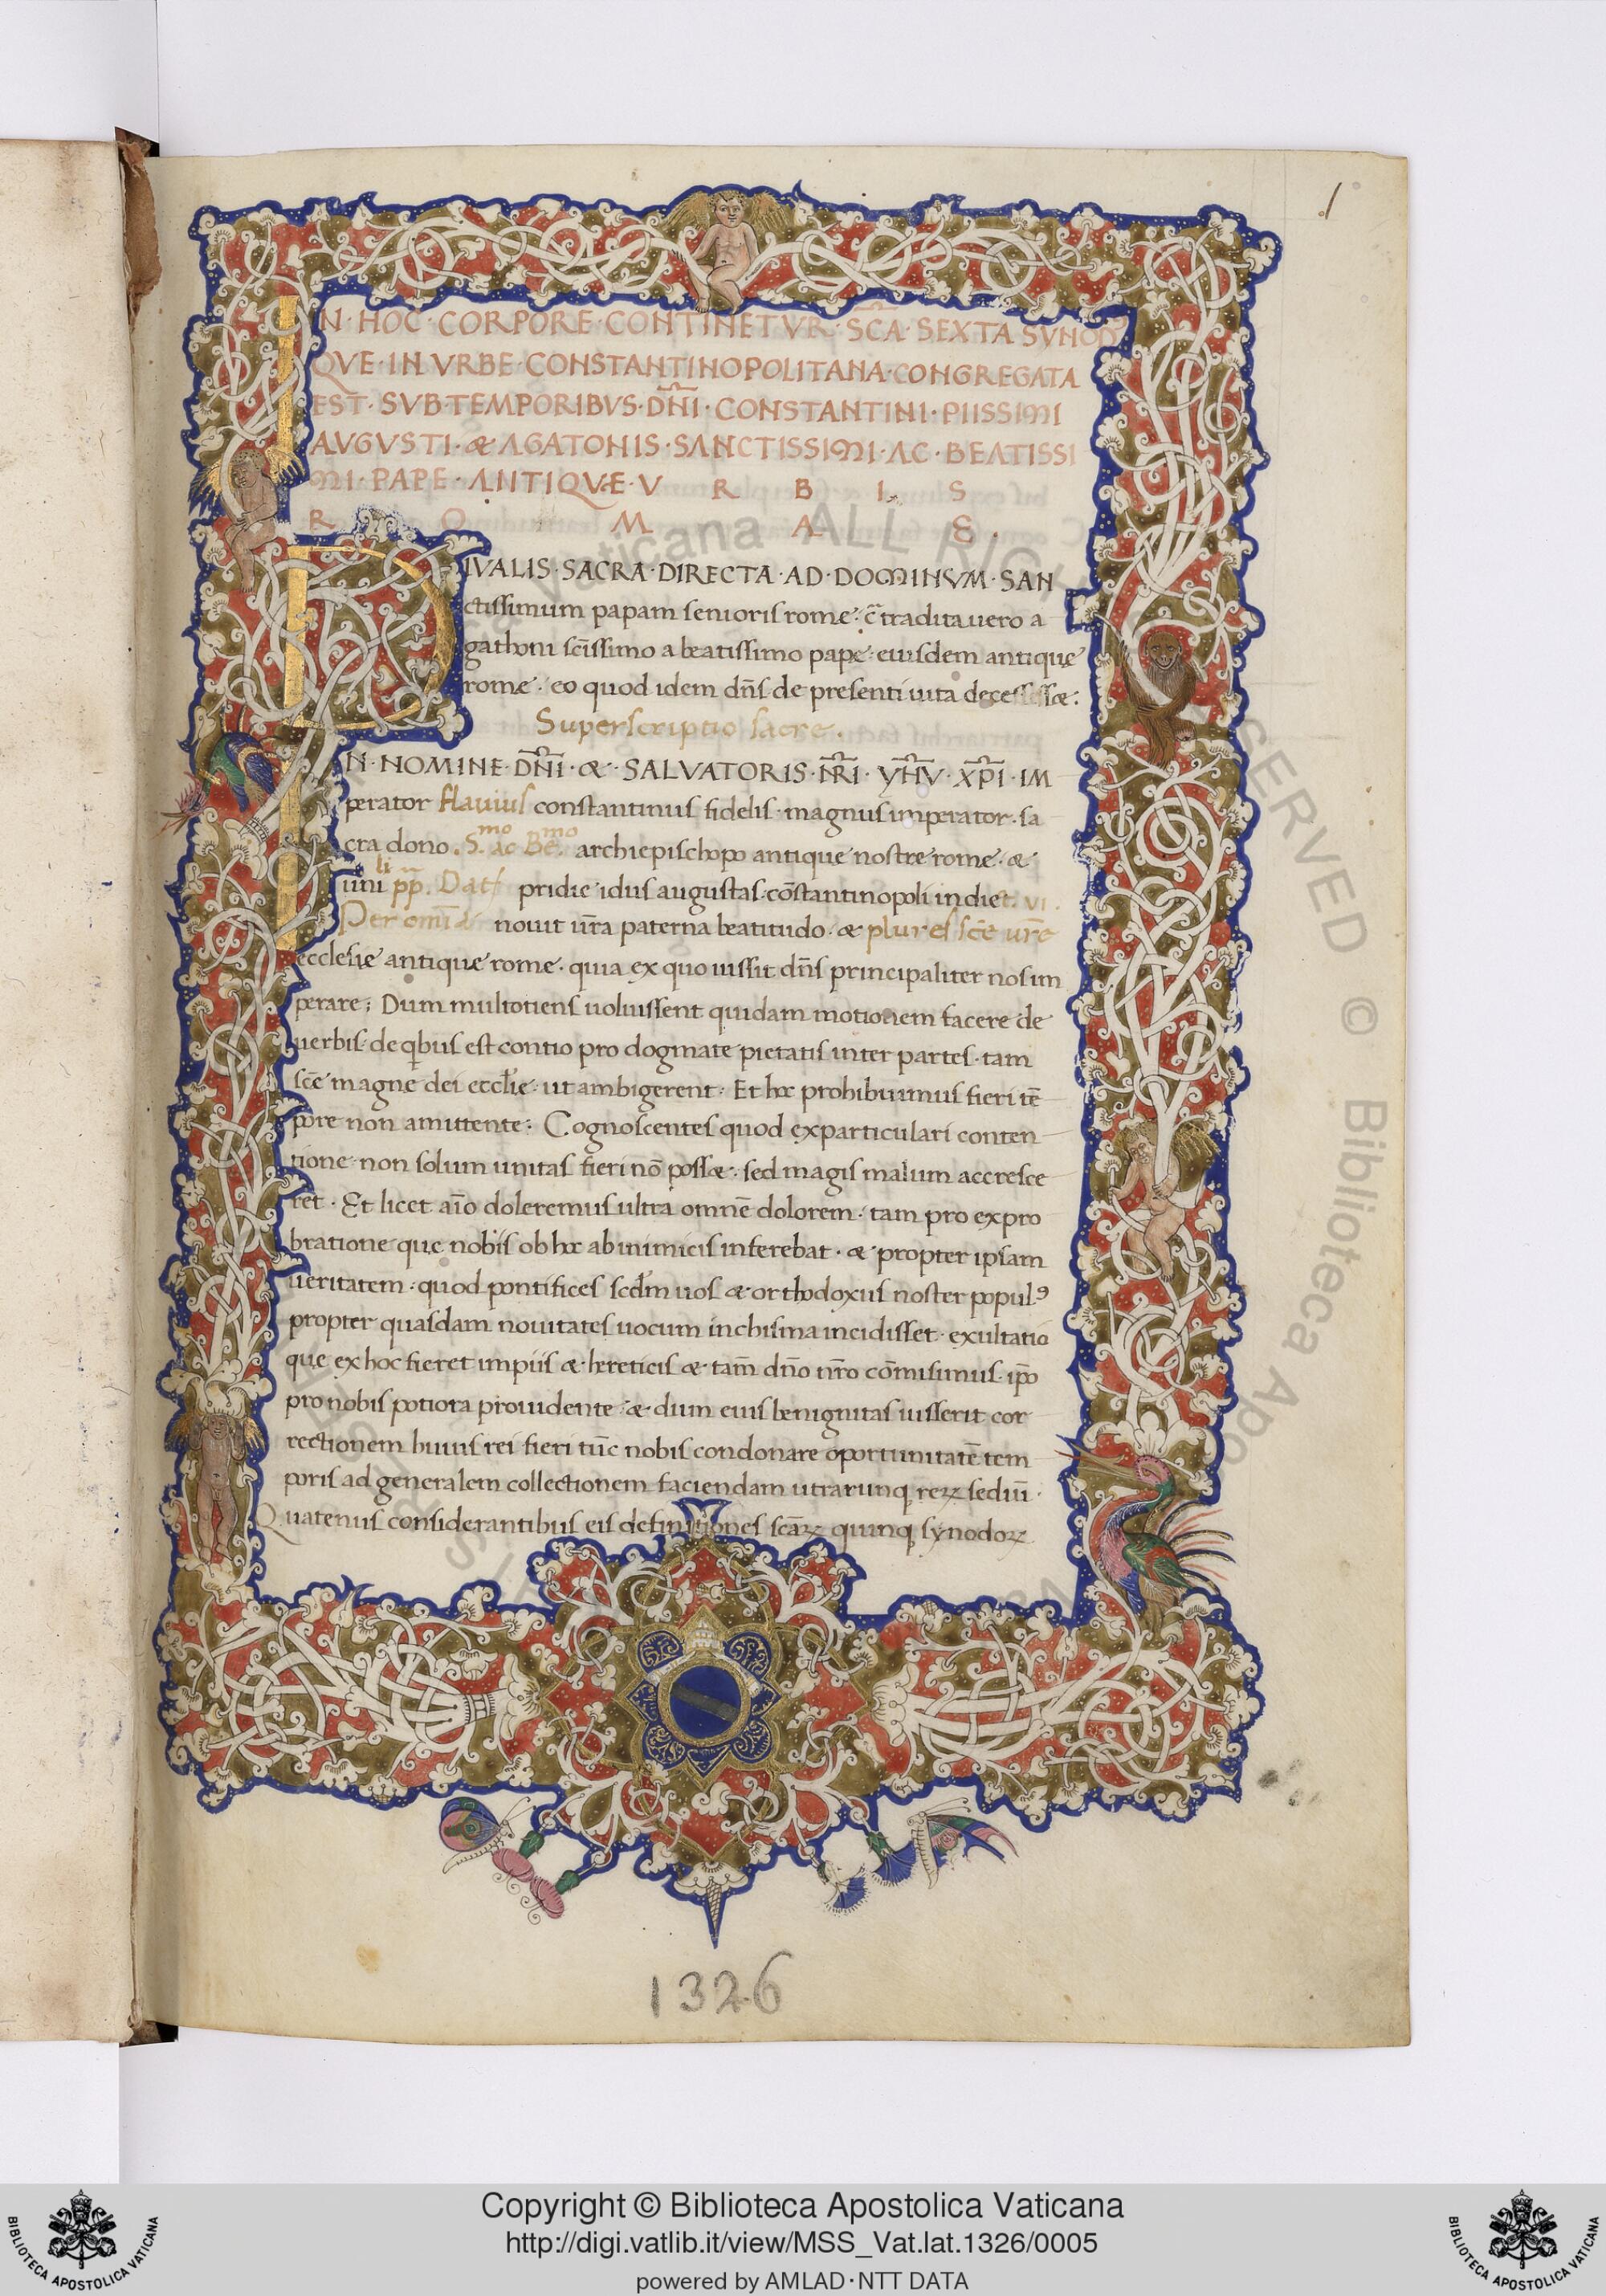 1
IN·HOC·CORPORE·CONTINETVR·SC̄A·SEXTA SVNOD
QVE·IN VRBE·CONSTANTINOPOLITANA·CONGREGATA
EST·SVB·TEMPORIBVS·DN̄I·CONSTANTINI·PIISSIMI
AVGVSTI·&·AGATONIS·SANCTISSIMI·AC·BEATISSI
MI·PAPE·ANTIQVE·V R B I S
R O M A E.
DIVALIS·SACRA·DIRECTA·AD·DOMINVM·SAN
ctissimum papam senioris rome· c̄ tradita uero a
gathoni scīssimo a beatissimo pape· eiusdem antique
rome· eo quod idem dn̄s de presenti uita decessiss&:
Superscriptio sacre.
IN·NOMINE·DN̄I·&·SALVATORIS·NR̄I·YH̄V·XP̄I·IM
perator flauius constantinus fidelis·magnus imperator·sa
cra dono. S.mo ac Be.mo archiepischopo antique nostre rome·&
uniuli pp̄. Dat pridie idus augustas·cōstantinopoli indict. VI.
Per omīa nouit ur̄a paterna beatitudo·& plures scē ur̄e
ecclesie antique rome·quia ex quo iussit dn̄s principaliter nos im
perare; Dum multotiens uoluissent quidam motionem facere de
uerbis·de qbus est contio pro dogmate pietatis inter partes·tam
scē magne dei eccl̄ie·ut ambigerent· Et hoc prohibuimus fieri tē
pore non amittente: Cognoscentes quod ex particulari conten
tione non solum unitas fieri nō poss&·sed magis malum accresce
ret· Et licet aīo doleremus ultra omnē dolorem·tam pro expro
bratione que nobis ob hoc ab inimicis inferebat·& propter ipsam
ueritatem·quod pontifices scdm uos & orthodoxus noster popul9
propter quasdam nouitates uocum in chisma incidisset·exultatio
que ex hoc fieret impiis & hereticis & tam̄ dn̄o nr̄o cōmisimus·ip̄o
pro nobis potiora prouidente & dum eius benignitas iusserit cor
rectionem huius rei fieri tūc nobis condonare oportunitatē tem
poris ad generalem collectionem faciendam utrarunq reꝝ sediū·
Quatenus considerantibus eis definitiones scāꝝ quinq synodoꝝ
1326
Vaticana ALL RIGHTS RESERVED © Biblioteca Apostolica
Copyright © Biblioteca Apostolica Vaticana
http://digi.vatlib.it/view/MSS_Vat.lat.1326/0005
powered by AMLAD·NTT DATA
BIBLIOTECA APOSTOLICA VATICANA
BIBLIOTECA APOSTOLICA VATICANA